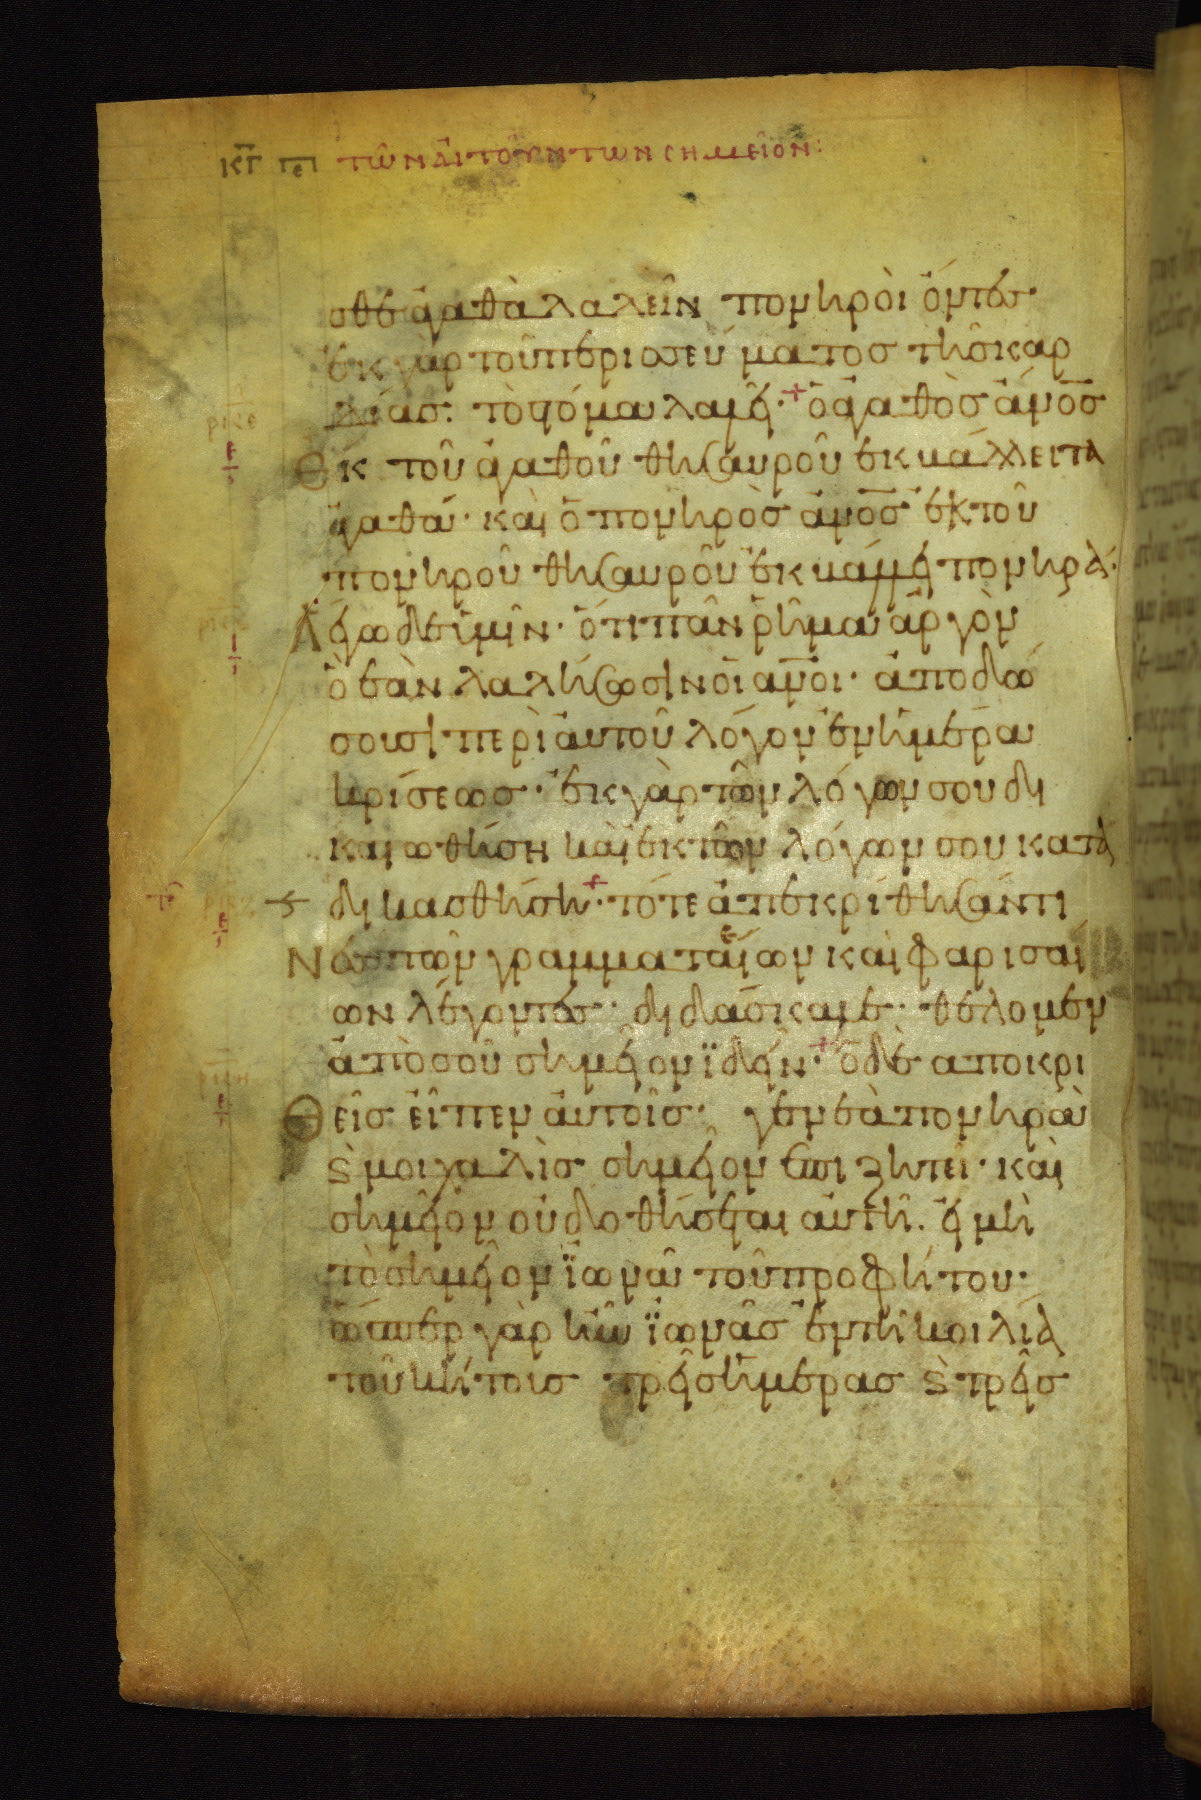 κγ πε τῶν αἰτούντων σημεῖον:
σθε ἀγαθὰ λαλεῖν πονηροὶ ὄντες·
ἐκ γὰρ τοῦ περισσεύματος τῆς καρ
δίας. τὸ στόμα λαλεῖ· + ὁ ἀγαθὸς ἀνος
Εκ τοῦ ἀγαθοῦ θησαυροῦ ἐκβάλλει τὰ
ἀγαθά· καὶ ὁ πονηρὸς ἀνος ἐκ τοῦ
πονηροῦ θησαυροῦ ἐκβάλλει πονηρά·
Λέγω δὲ ὑμῖν· ὅτι πᾶν ῥῆμα ἀργὸν
ὃ ἐὰν λαλήσωσιν οἱ ανοι· ἀποδώ
σουσι περὶ αὐτοῦ λόγον ἐν ἡμέρα
κρίσεως· ἐκ γὰρ τῶν λόγων σου δι
καιωθήση καὶ ἐκ τῶν λόγων σου κατα
δικασθήση· τότε ἀπεκρίθησάν τι
Νές τῶν γραμματαίων καὶ φαρισαί
ων λέγοντες· διδάσκαλε· θέλομεν
ἀπὸ σοῦ σημεῖον ἰδεῖν· + ὁ δὲ αποκρι
Θεὶς εἶπεν αὐτοῖς· γενεὰ πονηρὰ
ϗ μοιχαλὶς σημεῖον ἐπιζητεῖ· καὶ
σημεῖον οὐ δοθήσεται αὐτῆ. εἰ μὴ
τὸ σημεῖον ἰωνᾶ τοῦ προφήτου·
ὥσπερ γὰρ ἦν ἰωνᾶς ἐν τῆ κοιλία
τοῦ κήτους τρεῖς ἡμέρας ϗ τρεῖς